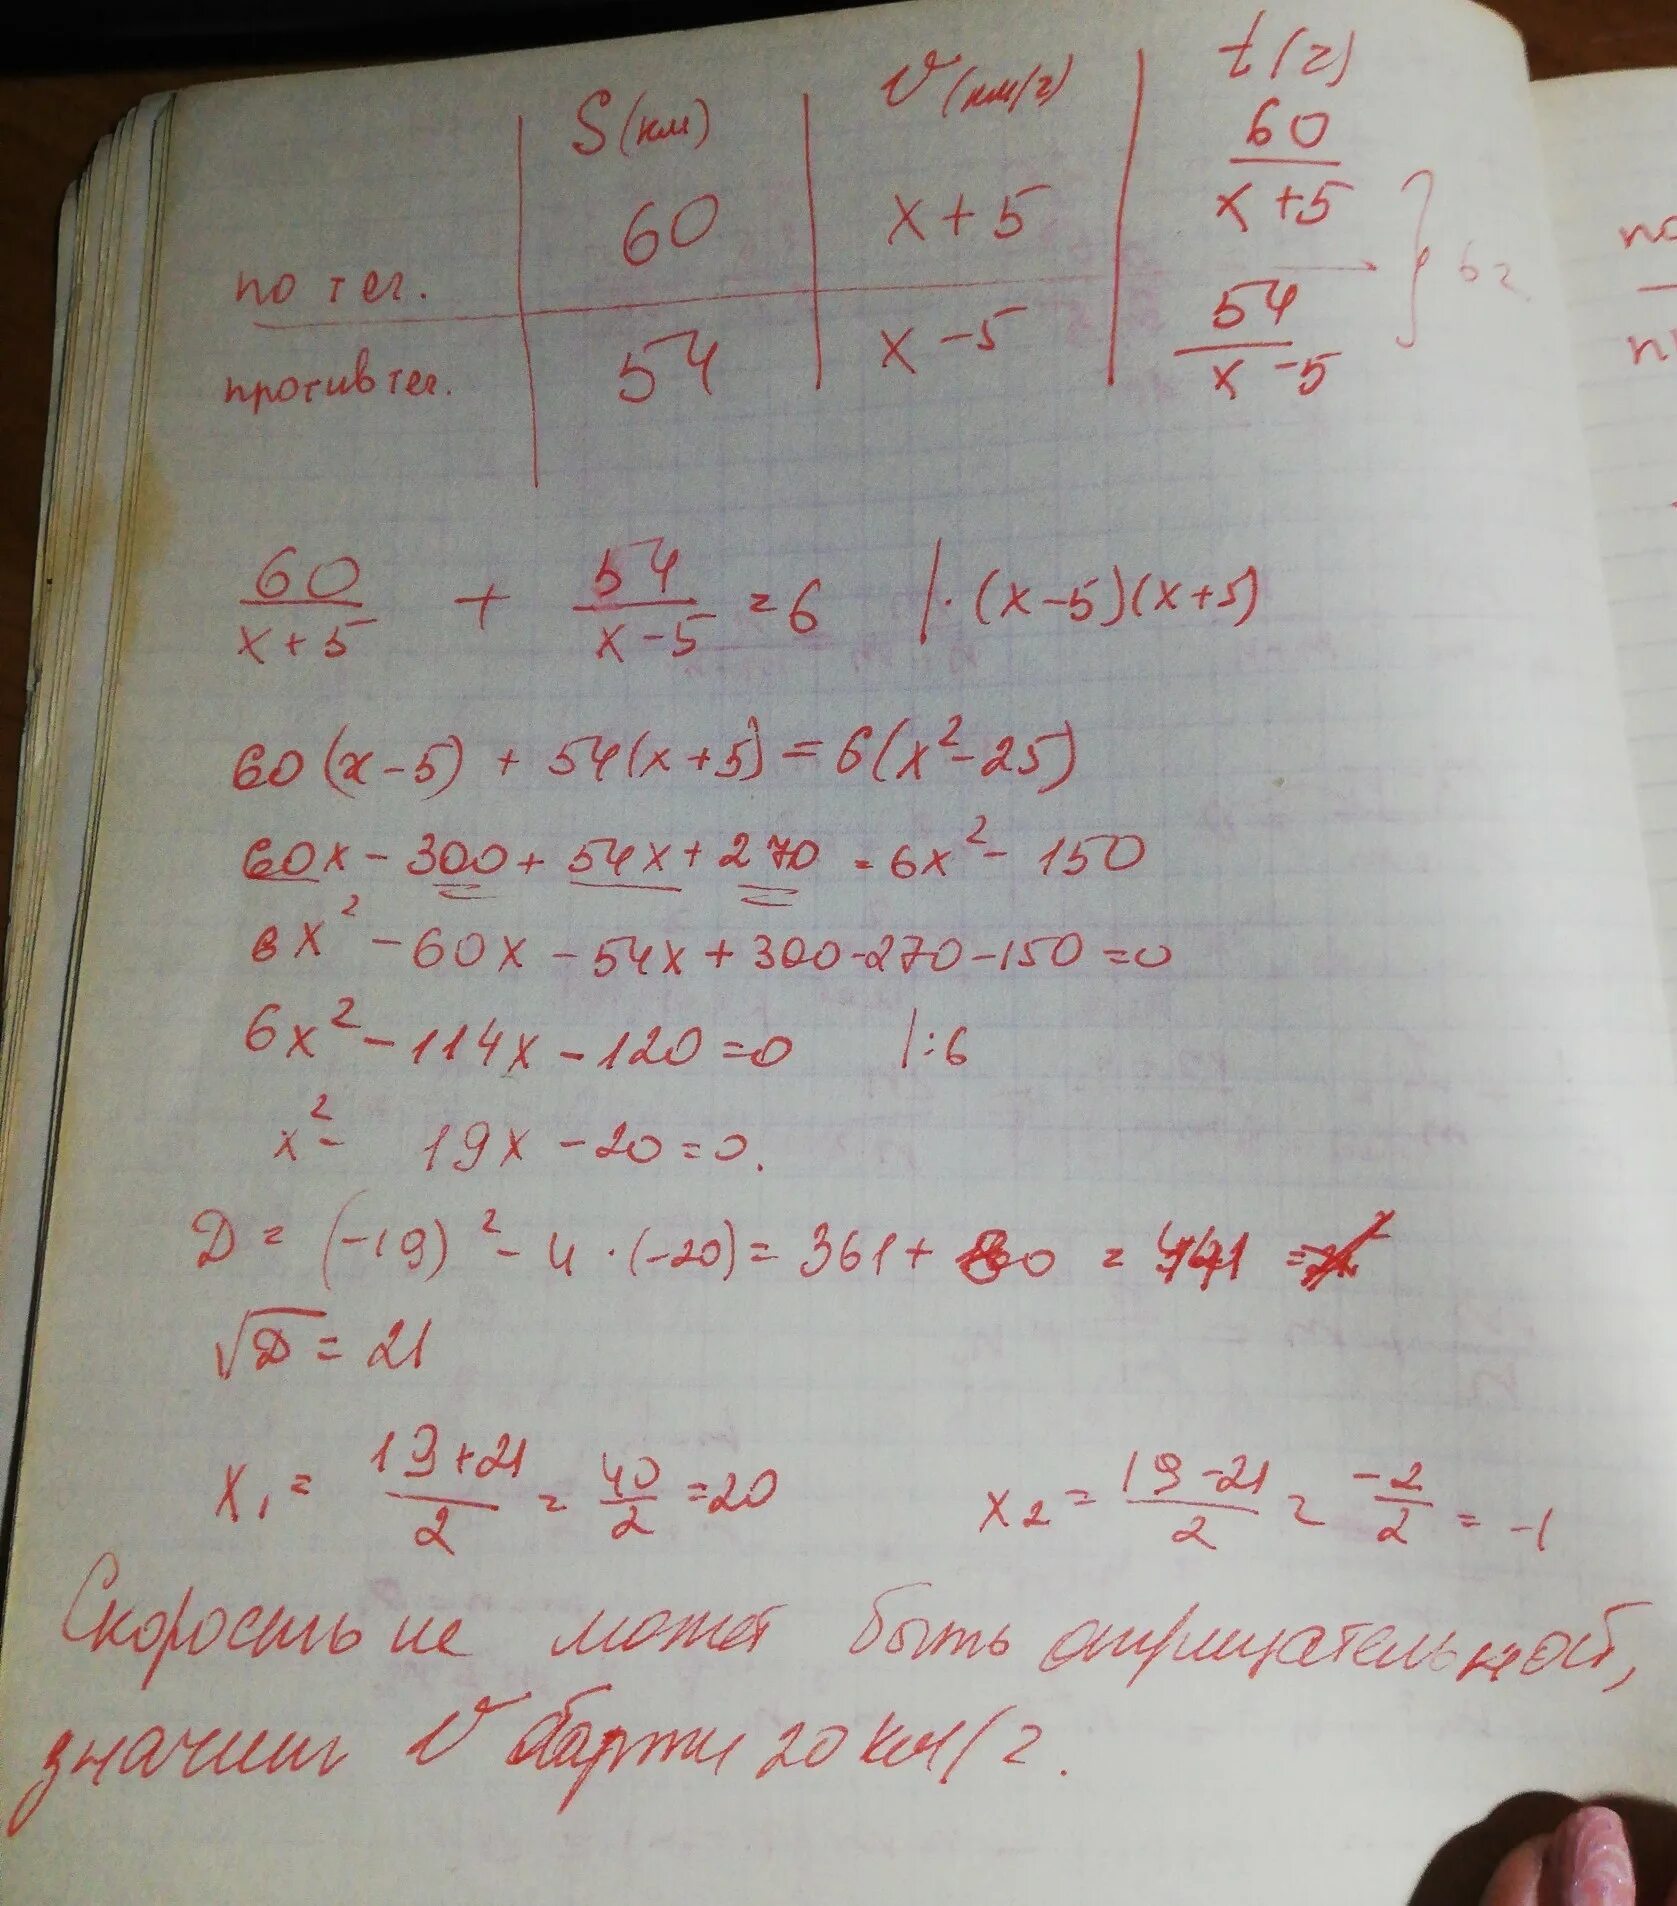 S(км) V(км/ч) t(ч)
по теч. 60 x+5 60/(x+5)
против теч. 54 x-5 54/(x-5) } 6ч
60/(x+5) + 54/(x-5) = 6 | · (x-5)(x+5)
60(x-5) + 54(x+5) = 6(x²-25)
60x - 300 + 54x + 270 = 6x² - 150
6x² - 60x - 54x + 300 - 270 - 150 = 0
6x² - 114x - 120 = 0 | :6
x² - 19x - 20 = 0.
Д = (-19)² - 4 · (-20) = 361 + 80 = 441
√Д = 21
x₁ = (19+21)/2 = 40/2 = 20 x₂ = (19-21)/2 = -2/2 = -1
Скорость не может быть отрицательной,
значит V баржи 20 км/ч.